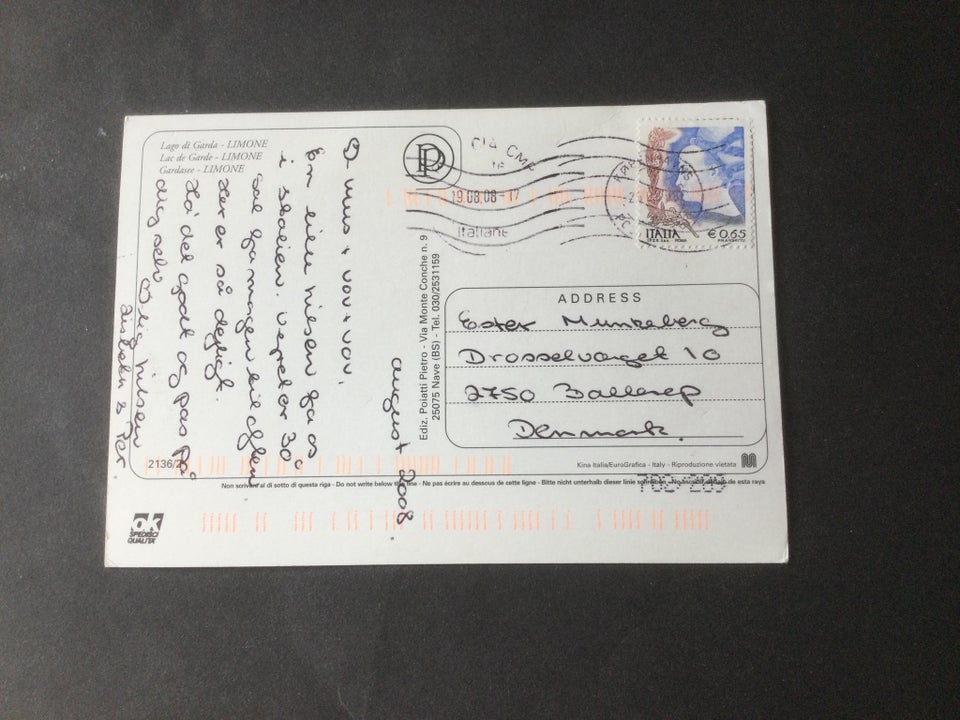 Lago di Garda - LIMONE
Lac de Garde - LIMONE
Gardasee - LIMONE
august 2008.
vov + vov.
En lille hilsen fra os
i Italien. Vejret er 30°
Sol fra morgen til aften
Her er så dejligt.
Ha' det godt og pas på
dig selv
hilsen
& Per
PD
CMP
19.08.08-17
Italiane
ITALIA
I.P.Z.S. S.p.A. - ROMA
€ 0,65
Ediz. Poiatti Pietro - Via Monte Conche n. 9
25075 Nave (BS) - Tel. 030/2531159
ADDRESS
Ester Munkeberg
Drosselvanget 10
2750 Ballerup
Denmark.
2136/2
Kina Italia/EuroGrafica - Italy - Riproduzione vietata
Non scrivere al di sotto di questa riga - Do not write below the line - Ne pas écrire au dessous de cette ligne - Bitte nicht unterhalb dieser linie schreiben - No de esta raya
ok
SPEDISCI
QUALITÀ